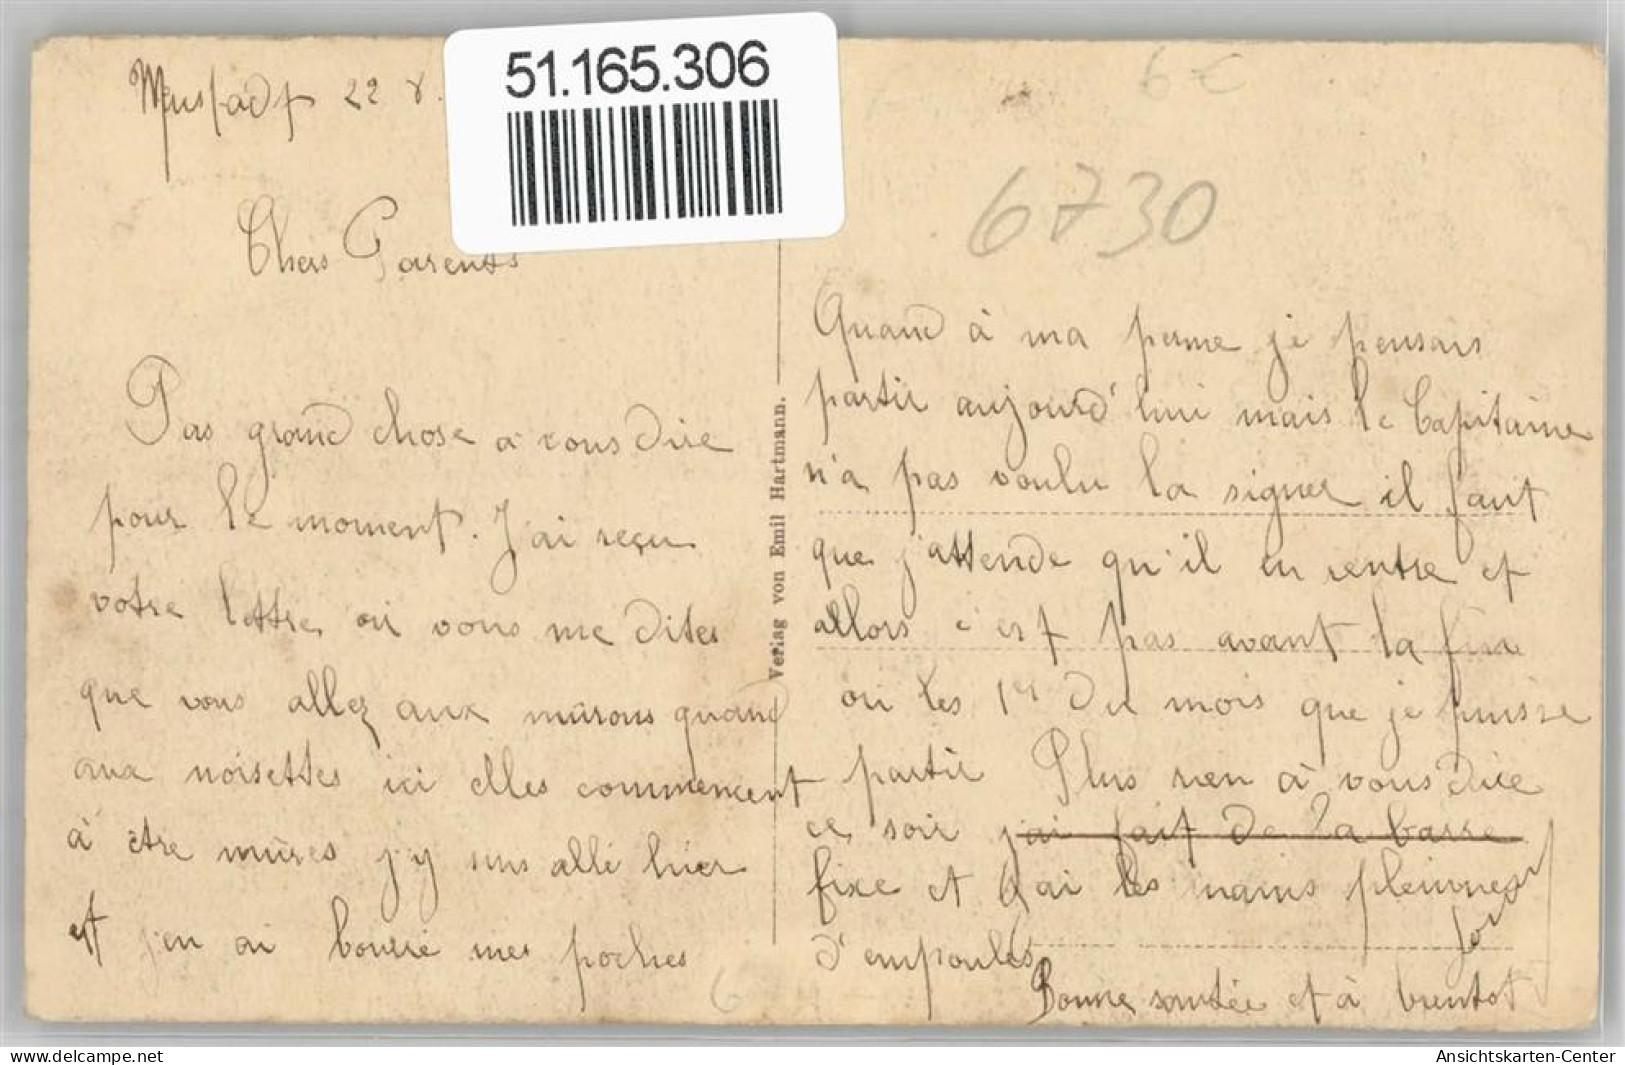 51.165.306
6 €
6730
22 8.
Chers Parents
Pas grand chose a vous dire
pour le moment. J'ai reçu
votre lettre ou vous me dites
que vous allez aux mûrons quand
aux noisettes ici elles commencent
à être mûres j'y suis allé hier
et j'en ai bourré mes poches
Verlag von Emil Hartmann.
Quand à ma perme je pensais
partir aujourd'hui mais le Capitaine
n'a pas voulu la signer il faut
que j'attende qu'il en rentre et
allors c'est pas avant la fin
ou les 1er du mois que je puisse
partir Plus rien à vous dire
ce soir j'ai fait de la barre
fixe et j'ai les mains pleines
d'empoules
Bonne santée et à bientot
6
www.oldthing.de
Ansichtskarten-Center